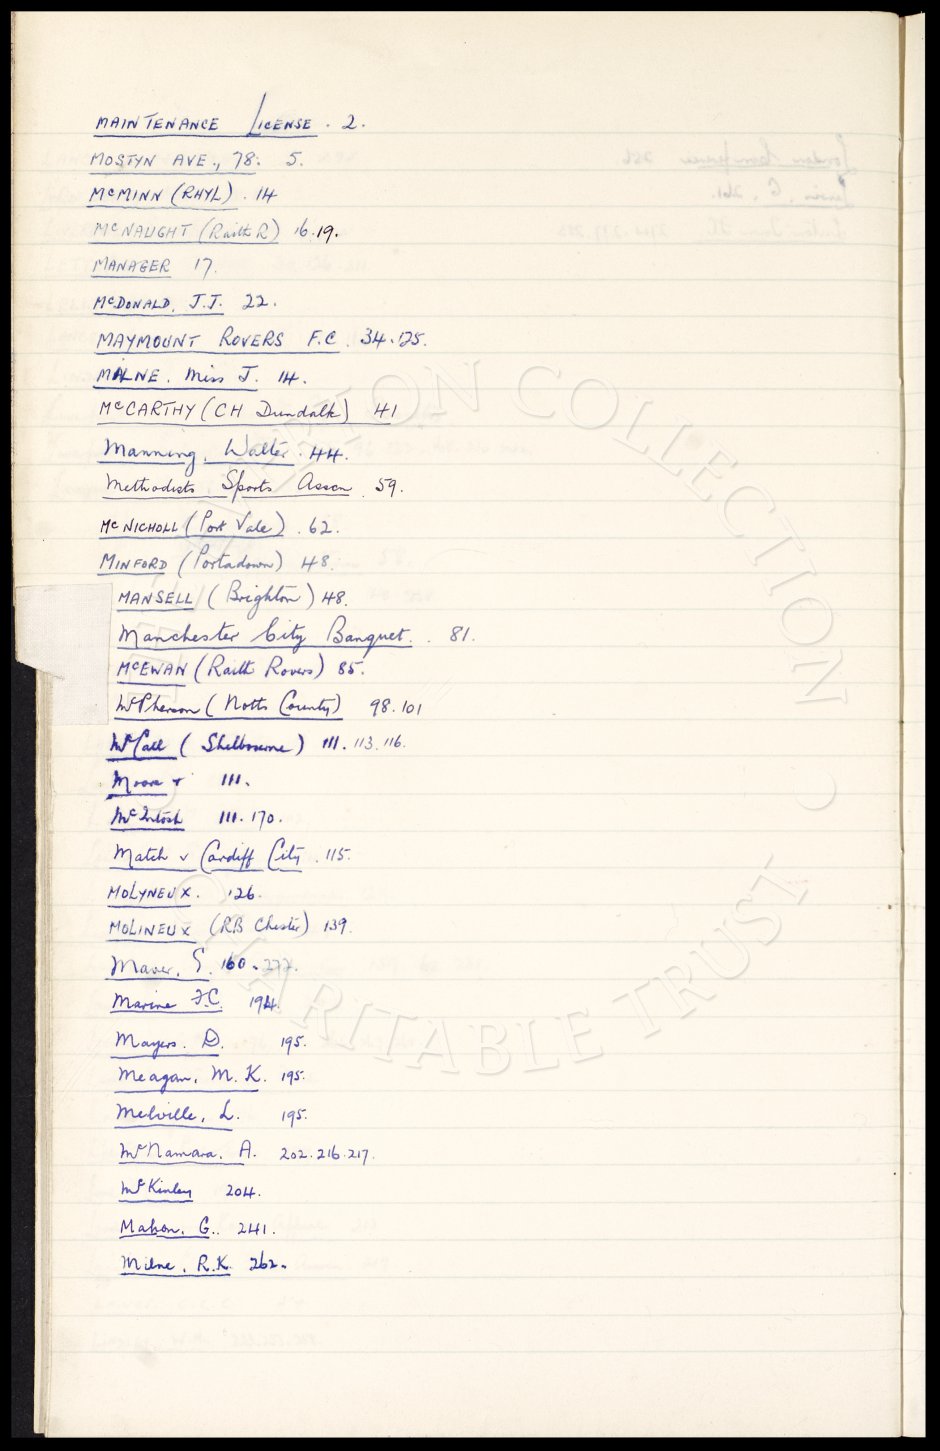 MAINTENANCE LICENSE. 2.
MOSTYN AVE., 78. 5.
McMINN (RHYL). 14
McNAUGHT (Raith R) 16.19.
MANAGER 17.
McDONALD, J.J. 22.
MAYMOUNT ROVERS F.C. 34.125.
MILNE. Miss J. 14.
McCARTHY (CH Dundalk) 41
Manning, Walter. 44.
Methodists Sports Asscn. 59.
McNICHOLL (Port Vale). 62.
MINFORD (Portadown) 48.
MANSELL (Brighton) 48.
Manchester City Banquet. . 81.
McEWAN (Raith Rovers) 85.
McPherson (Notts County) 98.101
McCall (Shelbourne) 111. 113. 116.
Moore 111.
McIntosh 111. 170.
Match v Cardiff City. 115.
MOLYNEUX. 126.
MOLINEUX (RB Chester) 139.
Maver, S. 160.277.
Marine F.C. 194.
Mayers. D. 195.
Meagan, M. K. 195.
Melville, L. 195.
McNamara, A. 202.216.217.
McKinley 204.
Mahon, G.. 241.
Milne, R.K. 262.
LITTLETON COLLECTION
CHARITABLE TRUST